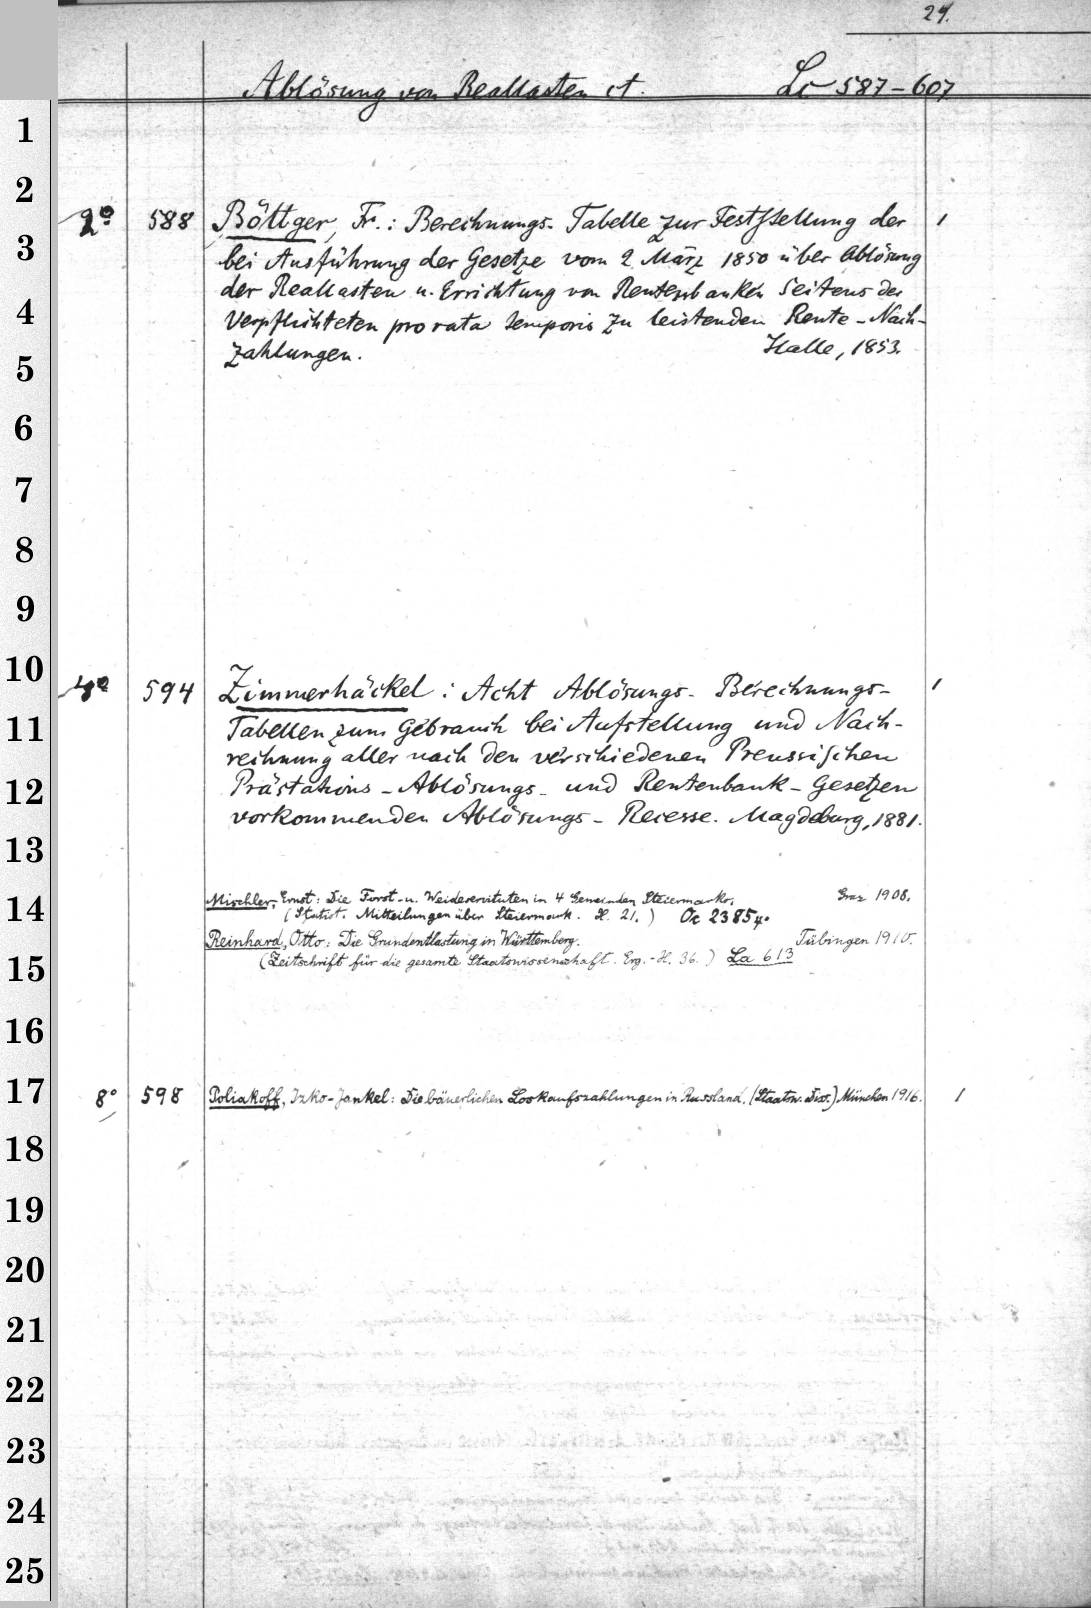 24.
Ablösung von Reallasten ct. Lc 587-607
1
2
2° 588 Böttger, Fr.: Berechnungs-Tabelle zur Festssellung der 1
3
bei Ausführung der Gesetze vom 2 März 1850 über Ablösung
der Reallasten u. Errichtung von Rentenbanken Seitens der
4
Verpflichteten pro rata temporis zu leistenden Rente-Nach-
zahlungen. Halle, 1853.
5
6
7
8
9
10
4° 594 Zimmerhäckel: Acht Ablösungs-Berechnungs- 1
11
Tabellen zum Gebrauch bei Aufstellung und Nach-
rechnung aller nach den verschiedenen Preussischen
12
Prästations-Ablösungs- und Rentenbank-Gesetzen
vorkommenden Ablösungs-Recesse. Magdeburg, 1881.
13
14
Mischler, Ernst: Die Forst- u. Weideservituten in 4 Gemeinden Steiermarks. Graz 1908.
(Statist. Mitteilungen über Steiermark. H. 21.) Oc 2385 4°
Reinhard, Otto: Die Grundentlastung in Württemberg. Tübingen 1910.
15
(Zeitschrift für die gesamte Staatswissenschaft. Erg.-H. 36.) La 613
16
17
8° 598 Poliakoff, Izko-Jankel: Die bäuerlichen Loskaufszahlungen in Russland. (Staatsw. Diss.) München 1916. 1
18
19
20
21
22
23
24
25